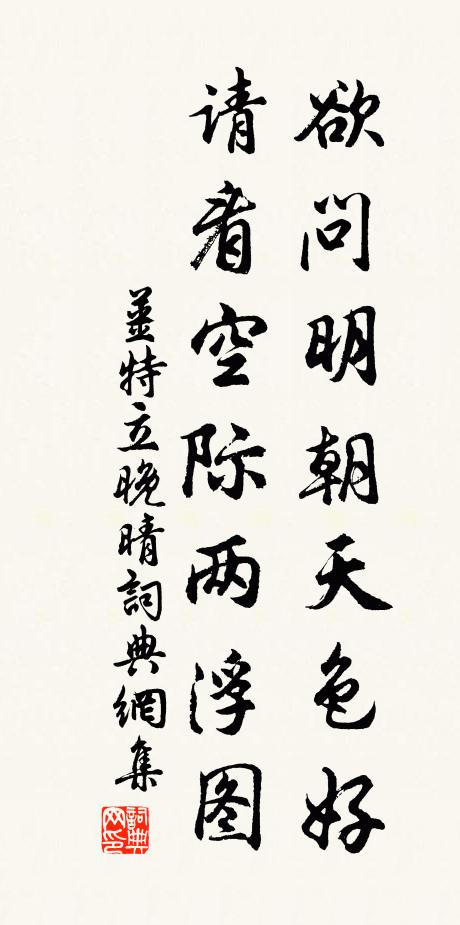 欲问明朝天色好
请看空际两浮图
姜特立晚晴詞典網集
詞典网印